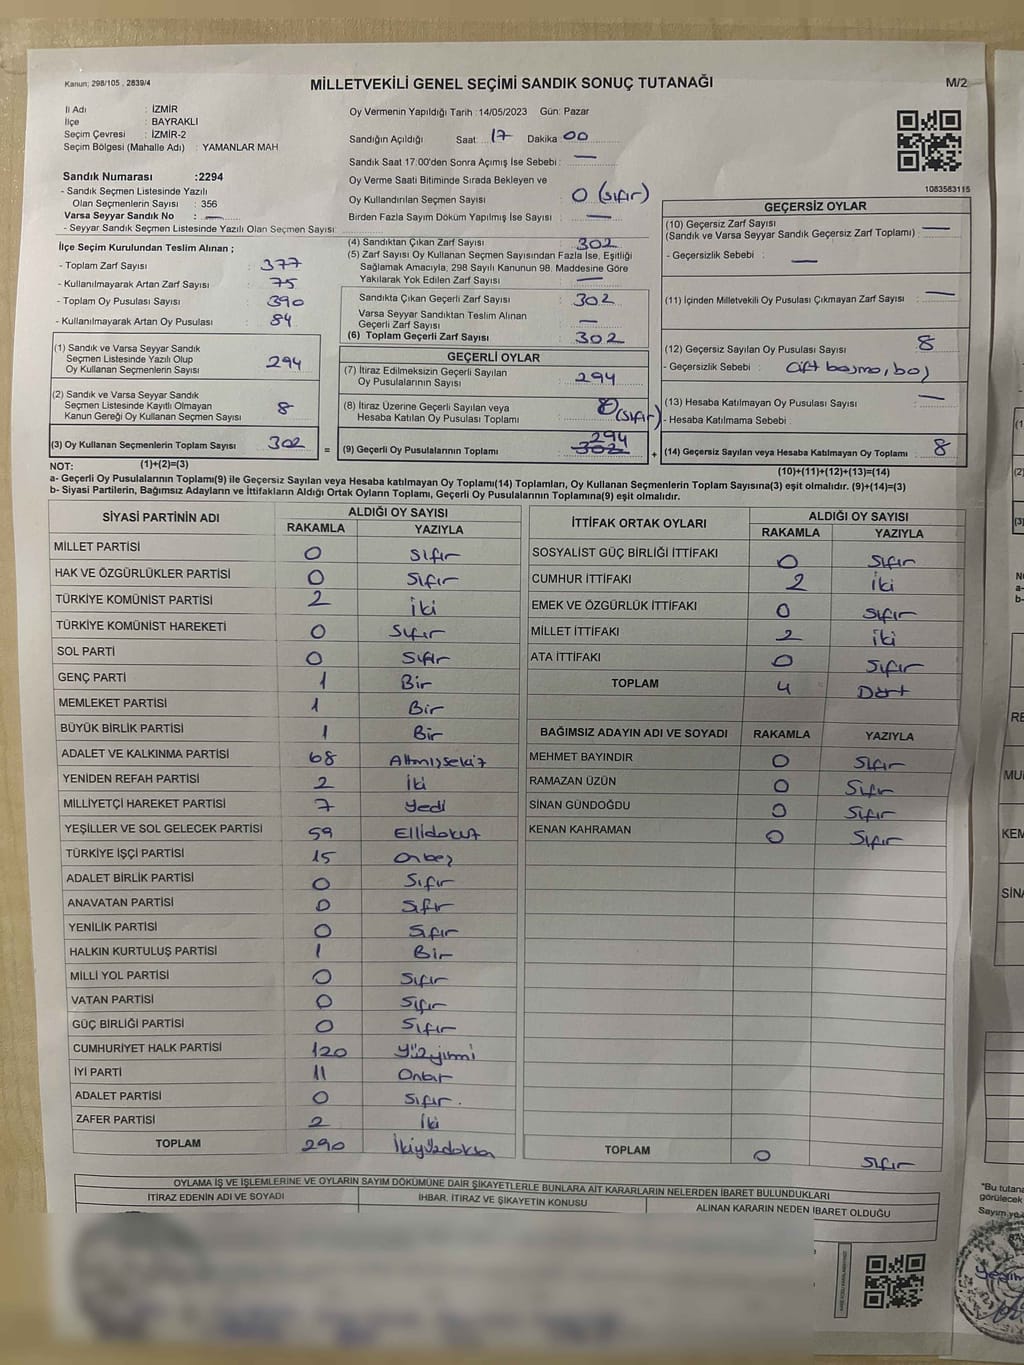 Kanun: 298/105 , 2839/4
MİLLETVEKİLİ GENEL SEÇİMİ SANDIK SONUÇ TUTANAĞI
M/2
İl Adı : İZMİR
İlçe : BAYRAKLI
Seçim Çevresi : İZMİR-2
Seçim Bölgesi (Mahalle Adı) : YAMANLAR MAH
Oy Vermenin Yapıldığı Tarih :14/05/2023 Gün: Pazar
Sandığın Açıldığı Saat: 17 Dakika 00
Sandık Saat 17:00'den Sonra Açımış İse Sebebi : —
Oy Verme Saati Bitiminde Sırada Bekleyen ve
Oy Kullandırılan Seçmen Sayısı : 0 (sıfır)
Birden Fazla Sayım Döküm Yapılmış İse Sayısı : —
1083583115
Sandık Numarası :2294
- Sandık Seçmen Listesinde Yazılı
Olan Seçmenlerin Sayısı : 356
Varsa Seyyar Sandık No : —
- Seyyar Sandık Seçmen Listesinde Yazılı Olan Seçmen Sayısı:
İlçe Seçim Kurulundan Teslim Alınan ;
- Toplam Zarf Sayısı : 377
- Kullanılmayarak Artan Zarf Sayısı : 75
- Toplam Oy Pusulası Sayısı : 390
- Kullanılmayarak Artan Oy Pusulası : 84
(1) Sandık ve Varsa Seyyar Sandık
Seçmen Listesinde Yazılı Olup
Oy Kullanan Seçmenlerin Sayısı : 294
(2) Sandık ve Varsa Seyyar Sandık
Seçmen Listesinde Kayıtlı Olmayan
Kanun Gereği Oy Kullanan Seçmen Sayısı : 8
(3) Oy Kullanan Seçmenlerin Toplam Sayısı : 302
(4) Sandıktan Çıkan Zarf Sayısı : 302
(5) Zarf Sayısı Oy Kullanan Seçmen Sayısından Fazla İse, Eşitliği
Sağlamak Amacıyla, 298 Sayılı Kanunun 98. Maddesine Göre
Yakılarak Yok Edilen Zarf Sayısı : —
Sandıkta Çıkan Geçerli Zarf Sayısı : 302
Varsa Seyyar Sandıktan Teslim Alınan
Geçerli Zarf Sayısı : —
(6) Toplam Geçerli Zarf Sayısı : 302
GEÇERLİ OYLAR
(7) İtiraz Edilmeksizin Geçerli Sayılan
Oy Pusulalarının Sayısı : 294
(8) İtiraz Üzerine Geçerli Sayılan veya
Hesaba Katılan Oy Pusulası Toplamı : 0 (sıfır)
= (9) Geçerli Oy Pusulalarının Toplamı : 294 302 +
GEÇERSİZ OYLAR
(10) Geçersiz Zarf Sayısı
(Sandık ve Varsa Seyyar Sandık Geçersiz Zarf Toplamı) : —
- Geçersizlik Sebebi : —
(11) İçinden Milletvekili Oy Pusulası Çıkmayan Zarf Sayısı : —
(12) Geçersiz Sayılan Oy Pusulası Sayısı : 8
- Geçersizlik Sebebi : çift basma, boş
(13) Hesaba Katılmayan Oy Pusulası Sayısı : —
- Hesaba Katılmama Sebebi :
(14) Geçersiz Sayılan veya Hesaba Katılmayan Oy Toplamı : 8
NOT: (1)+(2)=(3) (10)+(11)+(12)+(13)=(14)
a- Geçerli Oy Pusulasının Toplamı(9) ile Geçersiz Sayılan veya Hesaba Katılmayan Oy Toplamı(14) Toplamları, Oy Kullanan Seçmenlerin Toplam Sayısına(3) eşit olmalıdır. (9)+(14)=(3)
b- Siyasi Partilerin, Bağımsız Adayların ve İttifakların Aldığı Ortak Oyların Toplamı, Geçerli Oy Pusulalarının Toplamına(9) eşit olmalıdır.
SİYASİ PARTİNİN ADI ALDIĞI OY SAYISI
RAKAMLA YAZIYLA
MİLLET PARTİSİ 0 Sıfır
HAK VE ÖZGÜRLÜKLER PARTİSİ 0 Sıfır
TÜRKİYE KOMÜNİST PARTİSİ 2 İki
TÜRKİYE KOMÜNİST HAREKETİ 0 Sıfır
SOL PARTİ 0 Sıfır
GENÇ PARTİ 1 Bir
MEMLEKET PARTİSİ 1 Bir
BÜYÜK BİRLİK PARTİSİ 1 Bir
ADALET VE KALKINMA PARTİSİ 68 Altmışsekiz
YENİDEN REFAH PARTİSİ 2 İki
MİLLİYETÇİ HAREKET PARTİSİ 7 Yedi
YEŞİLLER VE SOL GELECEK PARTİSİ 59 Ellidokuz
TÜRKİYE İŞÇİ PARTİSİ 15 Onbeş
ADALET BİRLİK PARTİSİ 0 Sıfır
ANAVATAN PARTİSİ 0 Sıfır
YENİLİK PARTİSİ 0 Sıfır
HALKIN KURTULUŞ PARTİSİ 1 Bir
MİLLİ YOL PARTİSİ 0 Sıfır
VATAN PARTİSİ 0 Sıfır
GÜÇ BİRLİĞİ PARTİSİ 0 Sıfır
CUMHURİYET HALK PARTİSİ 120 Yüzyirmi
İYİ PARTİ 11 Onbir
ADALET PARTİSİ 0 Sıfır.
ZAFER PARTİSİ 2 İki
TOPLAM 290 İkiyüzdoksan
İTTİFAK ORTAK OYLARI ALDIĞI OY SAYISI
RAKAMLA YAZIYLA
SOSYALİST GÜÇ BİRLİĞİ İTTİFAKI 0 Sıfır
CUMHUR İTTİFAKI 2 İki
EMEK VE ÖZGÜRLÜK İTTİFAKI 0 Sıfır
MİLLET İTTİFAKI 2 İki
ATA İTTİFAKI 0 Sıfır
TOPLAM 4 Dört
BAĞIMSIZ ADAYIN ADI VE SOYADI RAKAMLA YAZIYLA
MEHMET BAYINDIR 0 Sıfır
RAMAZAN ÜZÜN 0 Sıfır
SİNAN GÜNDOĞDU 0 Sıfır
KENAN KAHRAMAN 0 Sıfır
TOPLAM 0 Sıfır
OYLAMA İŞ VE İŞLEMLERİNE VE OYLARIN SAYIM DÖKÜMÜNE DAİR ŞİKAYETLERLE BUNLARA AİT KARARLARIN NELERDEN İBARET BULUNDUKLARI
İTİRAZ EDENİN ADI VE SOYADI İHBAR, İTİRAZ VE ŞİKAYETİN KONUSU ALINAN KARARIN NEDEN İBARET OLDUĞU
"Bu tutana
görülecek